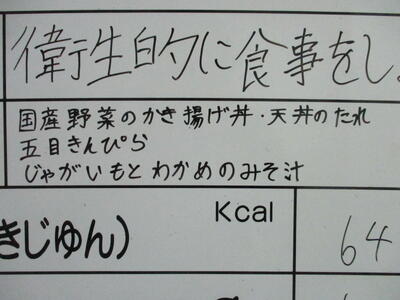 衛生的に食事をし
国産野菜のかき揚げ丼・天丼のたれ
五目きんぴら
じゃがいもとわかめのみそ汁
Kcal
きじゅん) 64